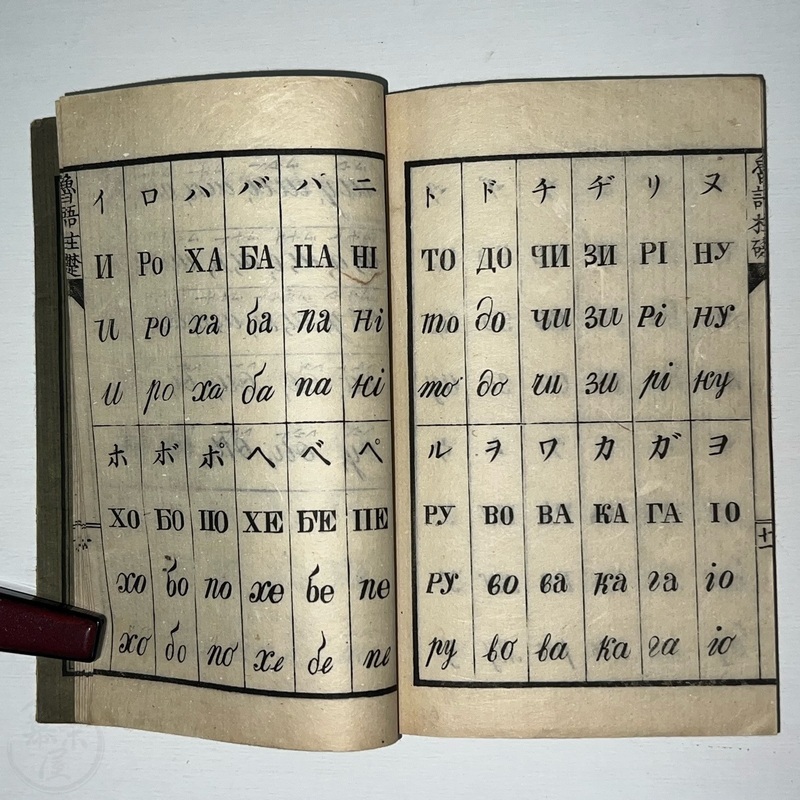 魯語柱礎
イ ロ ハ バ パ ニ
И РО ХА БА ПА НІ
и ро ха ба па ні
и ро ха ба па ні
ホ ボ ポ ヘ ベ ペ
ХО БО ПО ХЕ БЕ ПЕ
хо бо по хе бе пе
хо бо по хе бе пе
ト ド チ ヂ リ ヌ
ТО ДО ЧИ ЗИ РІ НУ
то до чи зи рі ну
то до чи зи рі ну
ル ヲ ワ カ ガ ヨ
РУ ВО ВА КА ГА ІО
ру во ва ка га іо
ру во ва ка га іо
魯語柱礎
十一